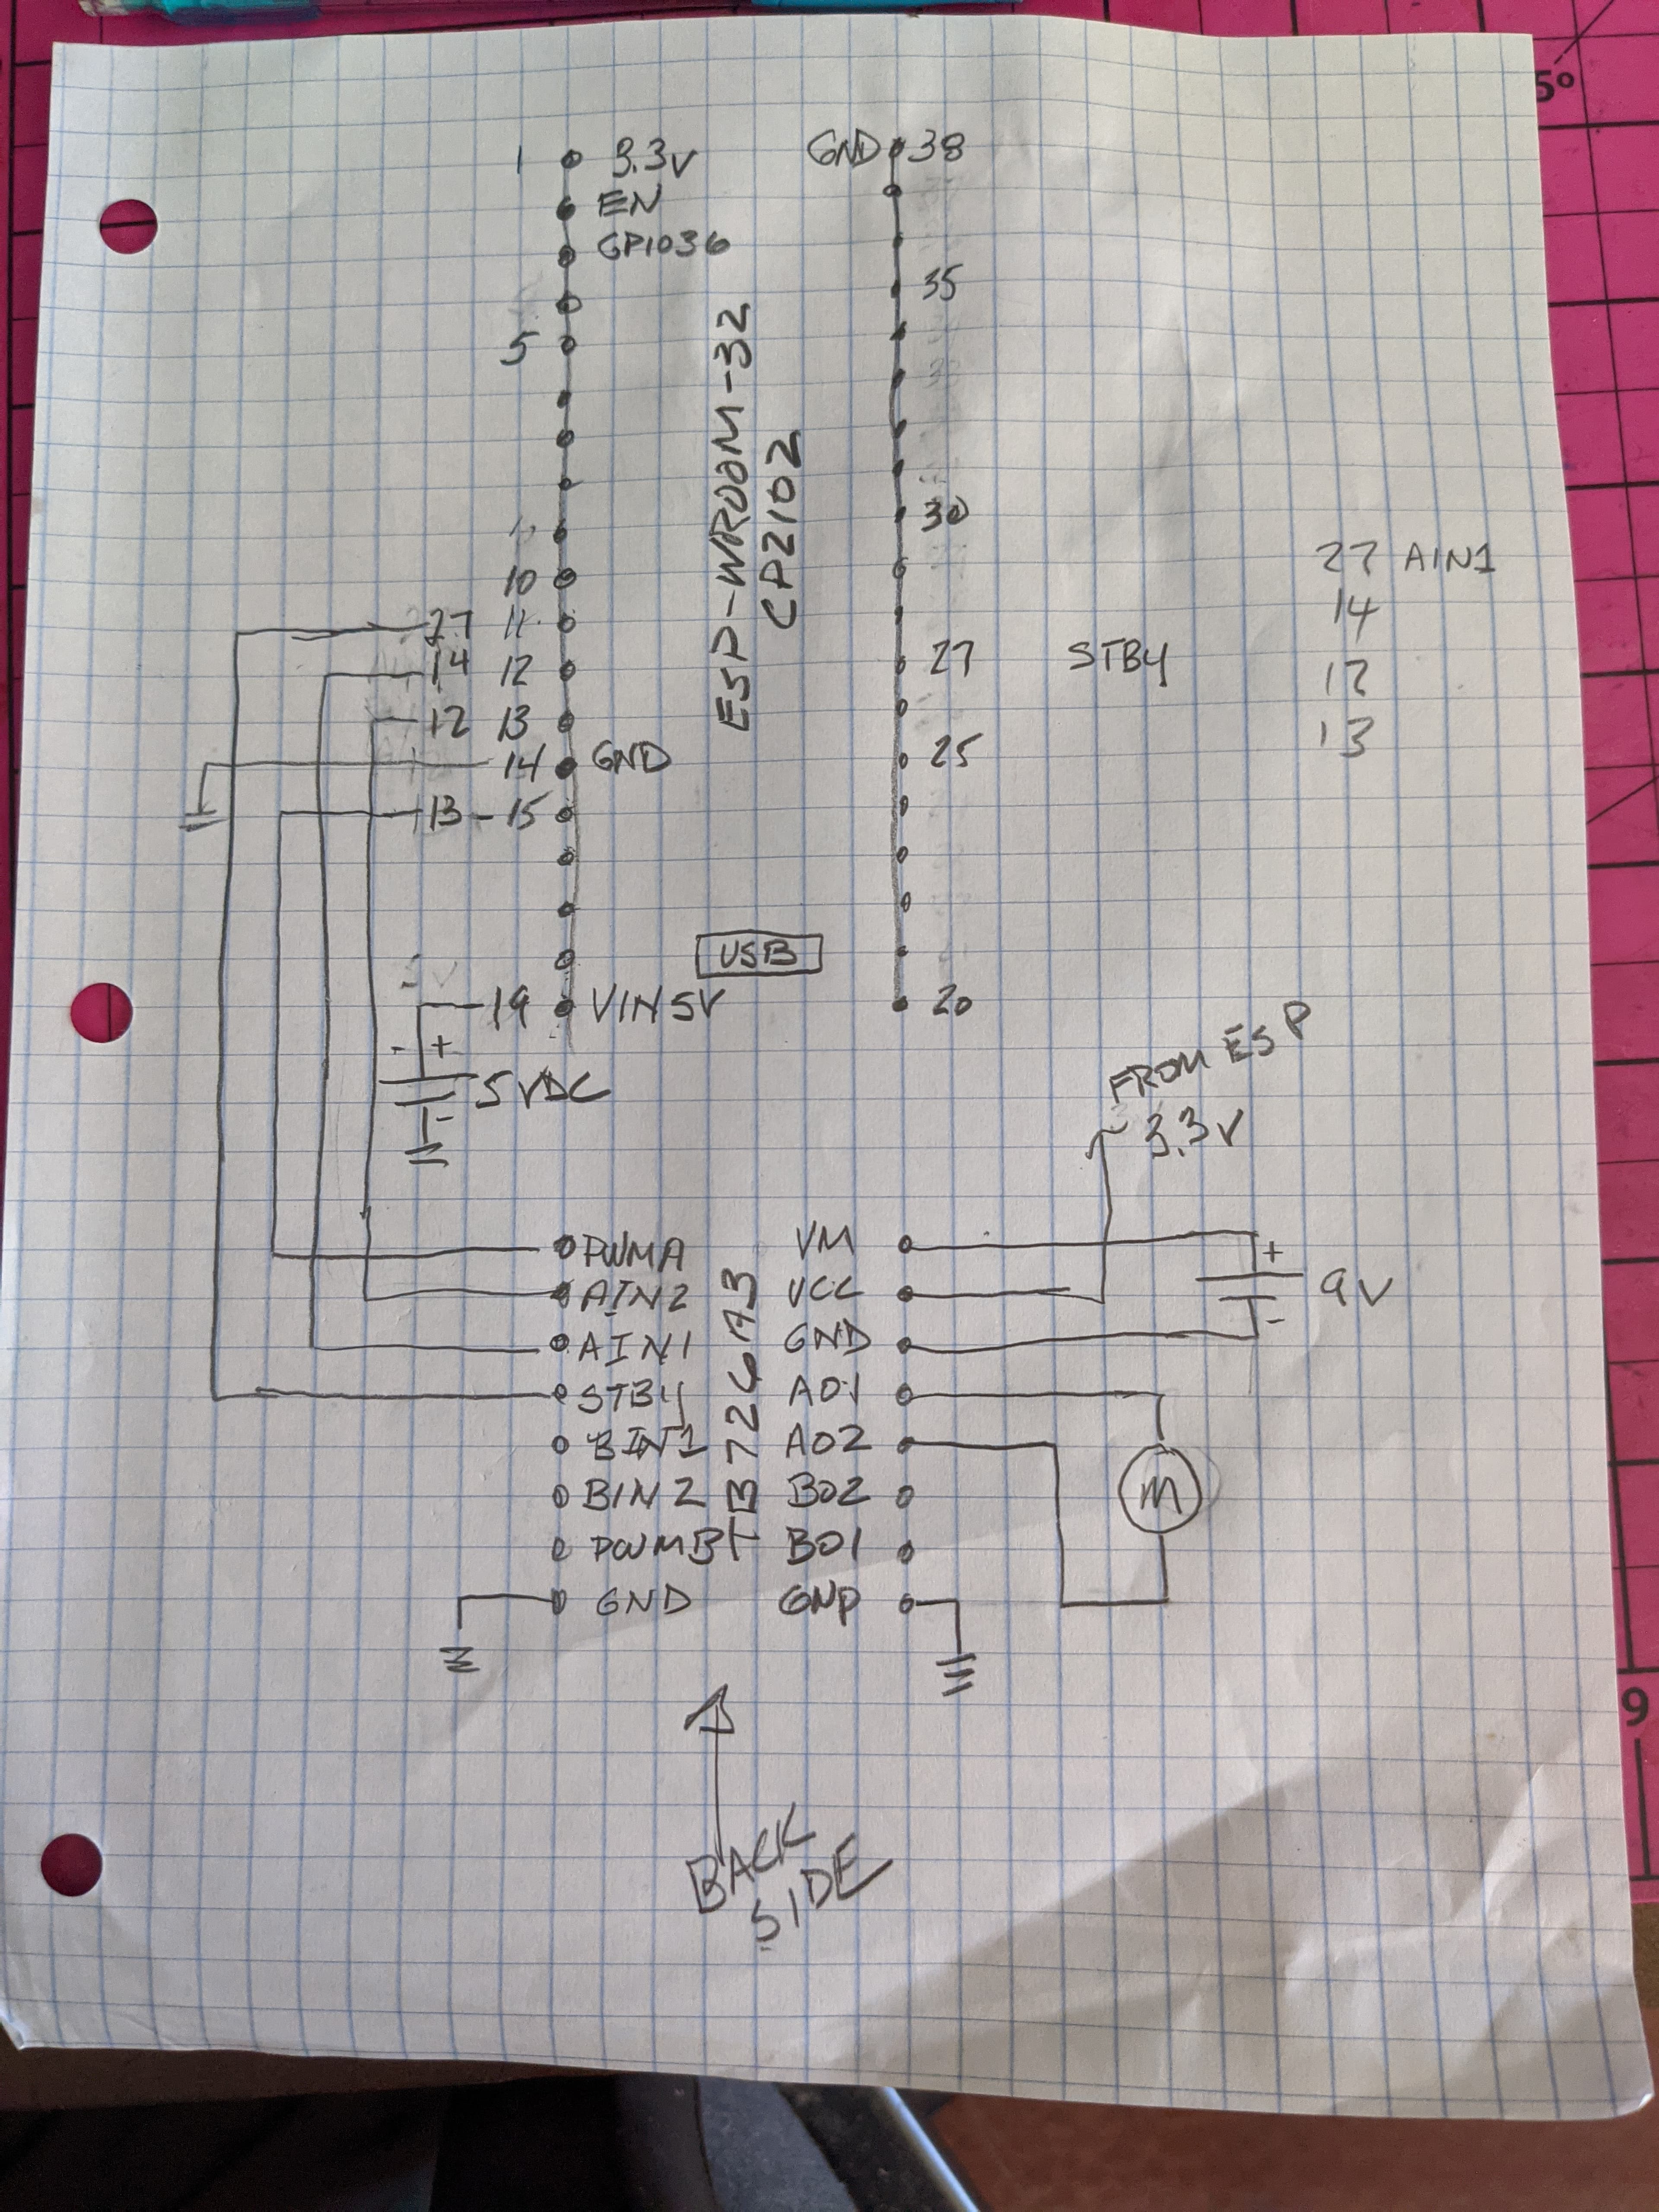 5°
1 3.3V
GND 38
EN
GPIO36
35
5
ESP-WROOM-32
CP2102
30
10
27 AIN1
27 11
14
14 12
27 STBY
12 13
12
13
14 GND
25
13 - 15
USB
5V
19 VIN5V
20
- +
5VDC
-
FROM ESP
3.3V
PWMA VM
+
AIN2 VCC
9V
-
AIN1 GND
STBY AO1
BIN1 AO2
M
BIN2 BO2
PWMB BO1
GND GND
9
BACK
SIDE